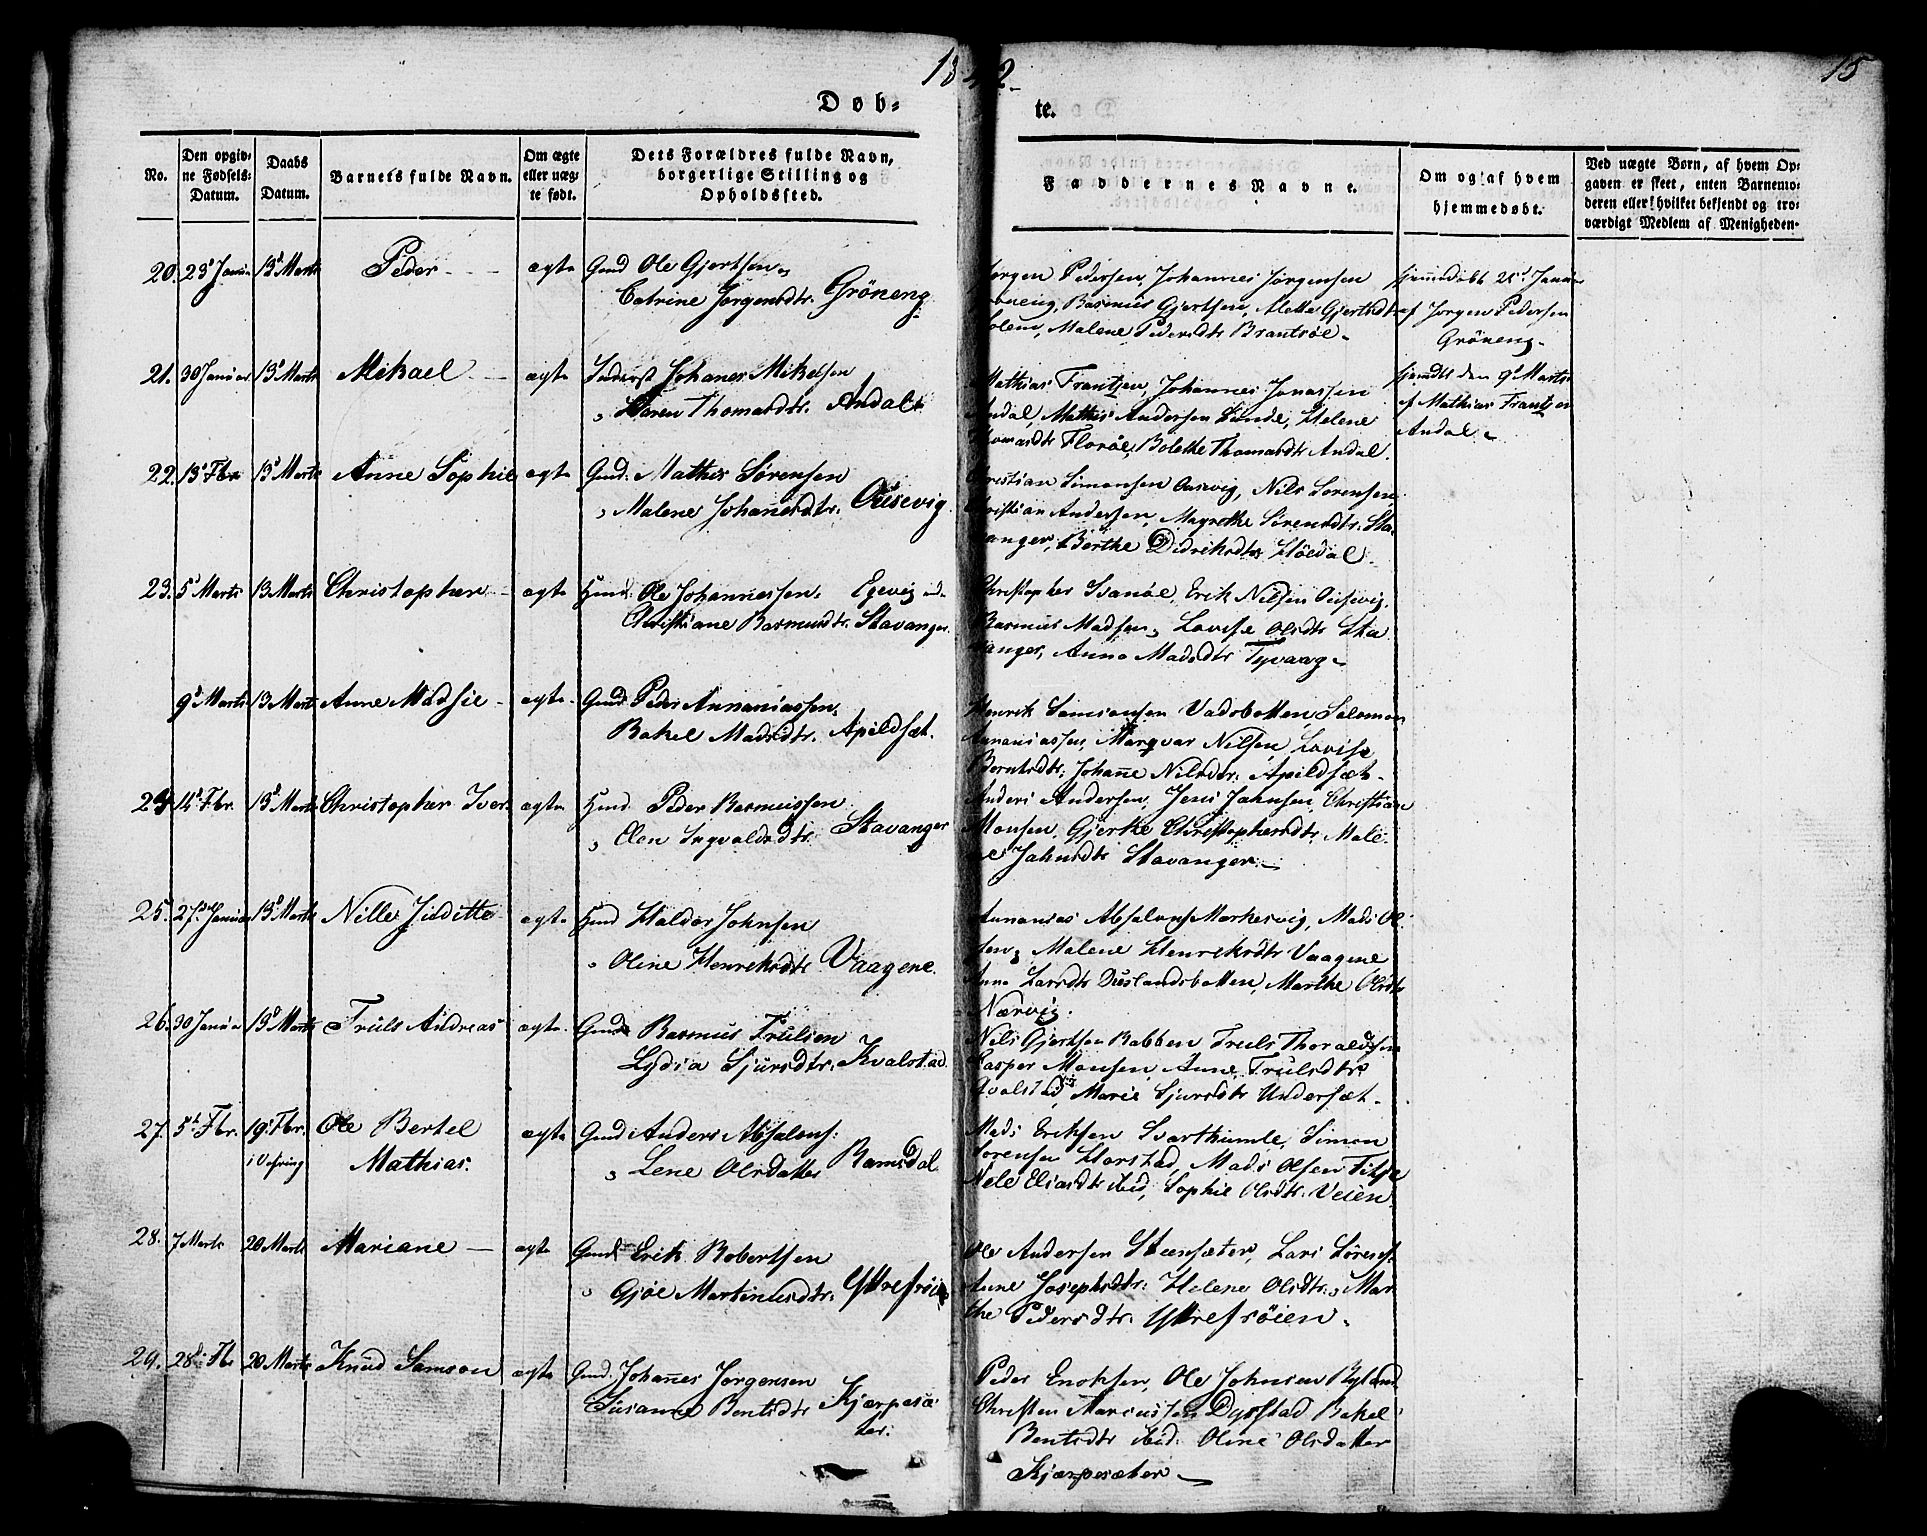 1842.
15
Døb-
te.
No.
Den opgiv-
ne Fødsels-
Datum.
Daabs
Datum.
Barnets fulde Navn.
Om ægte
eller uæg-
te født.
Dets Forældres fulde Navn,
borgerlige Stilling og
Opholdssted.
Faddernes Navne.
Om og af hvem
hjemmedøbt.
Ved uægte Børn, af hvem Op-
gaven er skeet, enten Barnemo-
deren eller hvilket bekjendt og tro-
værdigt Medlem af Menigheden.
20. 23 Januar 13 Marts Peder ægte Gmd Ole Gjertsen
Catrine Jørgensdtr. Gröneng
Jørgen Pedersen, Johannes Jørgensen
Gröneng, Rasmus Gjertsen, Alette Gjertsdtr
Solem, Malene Pedersdtr Brantsøe
hjemmedøbt 25 Januar
af Jørgen Pedersen
Gröneng
21. 30 Januar 13 Marts Mikael ægte Inderst Johanes Mikelsen
Karen Thomasdtr. Andal
Mathias Frantzen, Johannes Jonassen
Andal, Mathis Andersen Sunde, Helene
Thomasdtr Florøe, Bolethe Thomasdtr Andal.
hjemdbt den 9 Marts
af Mathias Frantzen
Andal
22. 13 Fbr 13 Marts Anne Sophie ægte Gmd. Mathis Sørensen
Malene Johannesdtr. Ousevig
Christian Simonsen Ousevig, Nils Sørensen,
Christian Andersen, Magrethe Sørensdtr. Sta-
vanger, Berthe Didriksdtr Høidal
23. 5 Marts 13 Marts Christopher ægte Huusmd Ole Johannessen. Egevig
Christiane Rasmusdtr. Stavanger
Christopher Svanøe, Erik Nilsen Ousevig,
Rasmus Madsen, Lovise Olsdtr Sta-
vanger, Anna Madsdtr Tyvaag
9 Marts 13 Marts Anne Madsie ægte Gmd Peder Annaniassen
Rakel Madsdtr. Apildsæt.
Henrik Samsonsen Vadsbotten, Salomon
Annaniassen, Marqvar Nilsen, Lovise
Berntsdtr, Johane Nilsdtr. Apildsæt
24 14 Fbr. 13 Marts Christopher Iver ægte Huusmd Peder Rasmussen
Elen Ingvaldsdtr. Stavanger
Anders Andersen, Jens Jahnsen, Christian
Monsen, Gjerthe Christophersdtr. Male-
ne Jahnsdtr Stavanger.
25. 27 Januar 13 Marts Nille Juditte ægte Huusmd Haldor Johnsen
Oline Henriksdtr Vaagene.
Annanias Absalons Markesvig, Mads Ol-
sen, Malene Henriksdtr Vaagene
Anna Larsdtr Duslandsbotten, Marthe Olsdtr
Nærvig.
26. 30 Januar 13 Marts Truls Andreas ægte Gmd Rasmus Trulsen
Lydia Sjursdtr. Kvalstad
Nils Gjertsen Rabben Truls Thoraldsen
Casper Monsen, Anne Trulsdtr.
Qvalstad, Marie Sjursdtr Undersæt
27. 5 Fbr. 19 Fbr. Ole Bertel ægte Gmd Anders Absalons:
i Vefring Mathias. Lene Olsdatter Ramsdal
Mads Eriksen Svarthumle, Simon
Sørensen Horstad, Mads Olsen Titse
Nele Eliasdtr ibid, Sophie Olsdtr. Veien.
28. 7 Marts 20 Marts Mariane ægte Gmd Erik Robertsen
Gjøe Martinusdtr. Yttrefrøien
Ole Andersen Steensæter, Lars Sørens.
Anne Josephsdtr. Helene Olsdtr., Mar-
the Pedersdtr. Yttrefrøien.
29. 28 Fbr 20 Marts Knud Samson ægte Gmd. Johannes Jørgensen
Susanne Bentsdtr Kjærpesæ-
ter.
Peder Enoksen, Ole Johnsen Ryland
Christen Marcussen Dyvstad Rakel
Bentsdtr ibid. Oline Olsdatter
Kjærpesæter